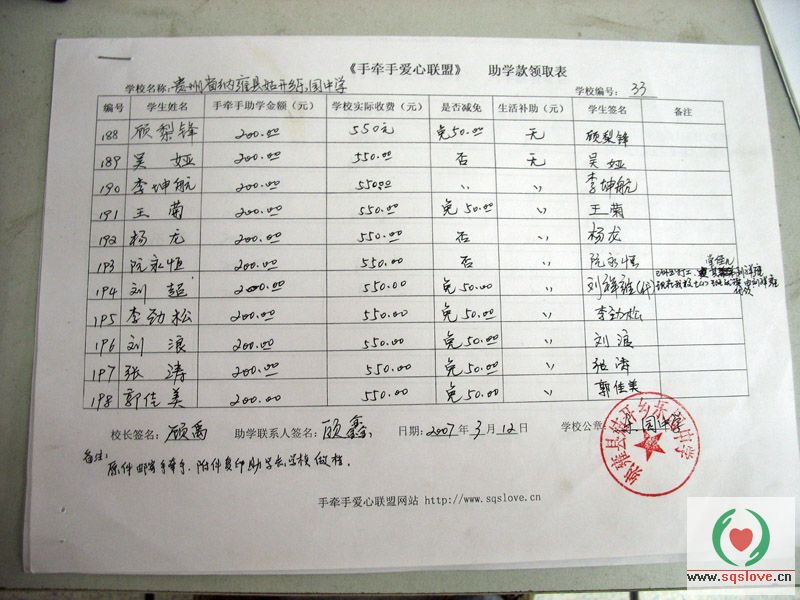 《手牵手爱心联盟》 助学款领取表
学校名称：贵州省纳雍县姑开乡乐园中学 学校编号：33
编号 学生姓名 手牵手助学金额（元） 学校实际收费（元） 是否减免 生活补助（元） 学生签名 备注
188 顾梨锋 200.00 550元 免50.00 无 顾梨锋
189 吴娅 200.00 550.00 否 无 吴娅
190 李坤航 200.00 550.00 〃 〃 李坤航
191 王菊 200.00 550.00 免50.00 〃 王菊
192 杨龙 200.00 550.00 否 〃 杨龙
193 阮永恒 200.00 550.00 否 〃 阮永恒
194 刘超 200.00 550.00 免50.00 〃 刘祥雍(代)
195 李劲松 200.00 550.00 免50.00 〃 李劲松
196 刘浪 200.00 550.00 免50.00 〃 刘浪
197 张涛 200.00 550.00 免50.00 〃 张涛
198 郭佳美 200.00 550.00 免50.00 〃 郭佳美
校长签名：顾禹 助学联系人签名：顾鑫 日期：2007年3月12日 学校公章：乐园中学
纳雍县姑开乡乐园中学
备注：原件邮寄手牵手，附件复印助学金学校做档。
手牵手爱心联盟网站 http://www.sqslove.cn
www.sqslove.cn